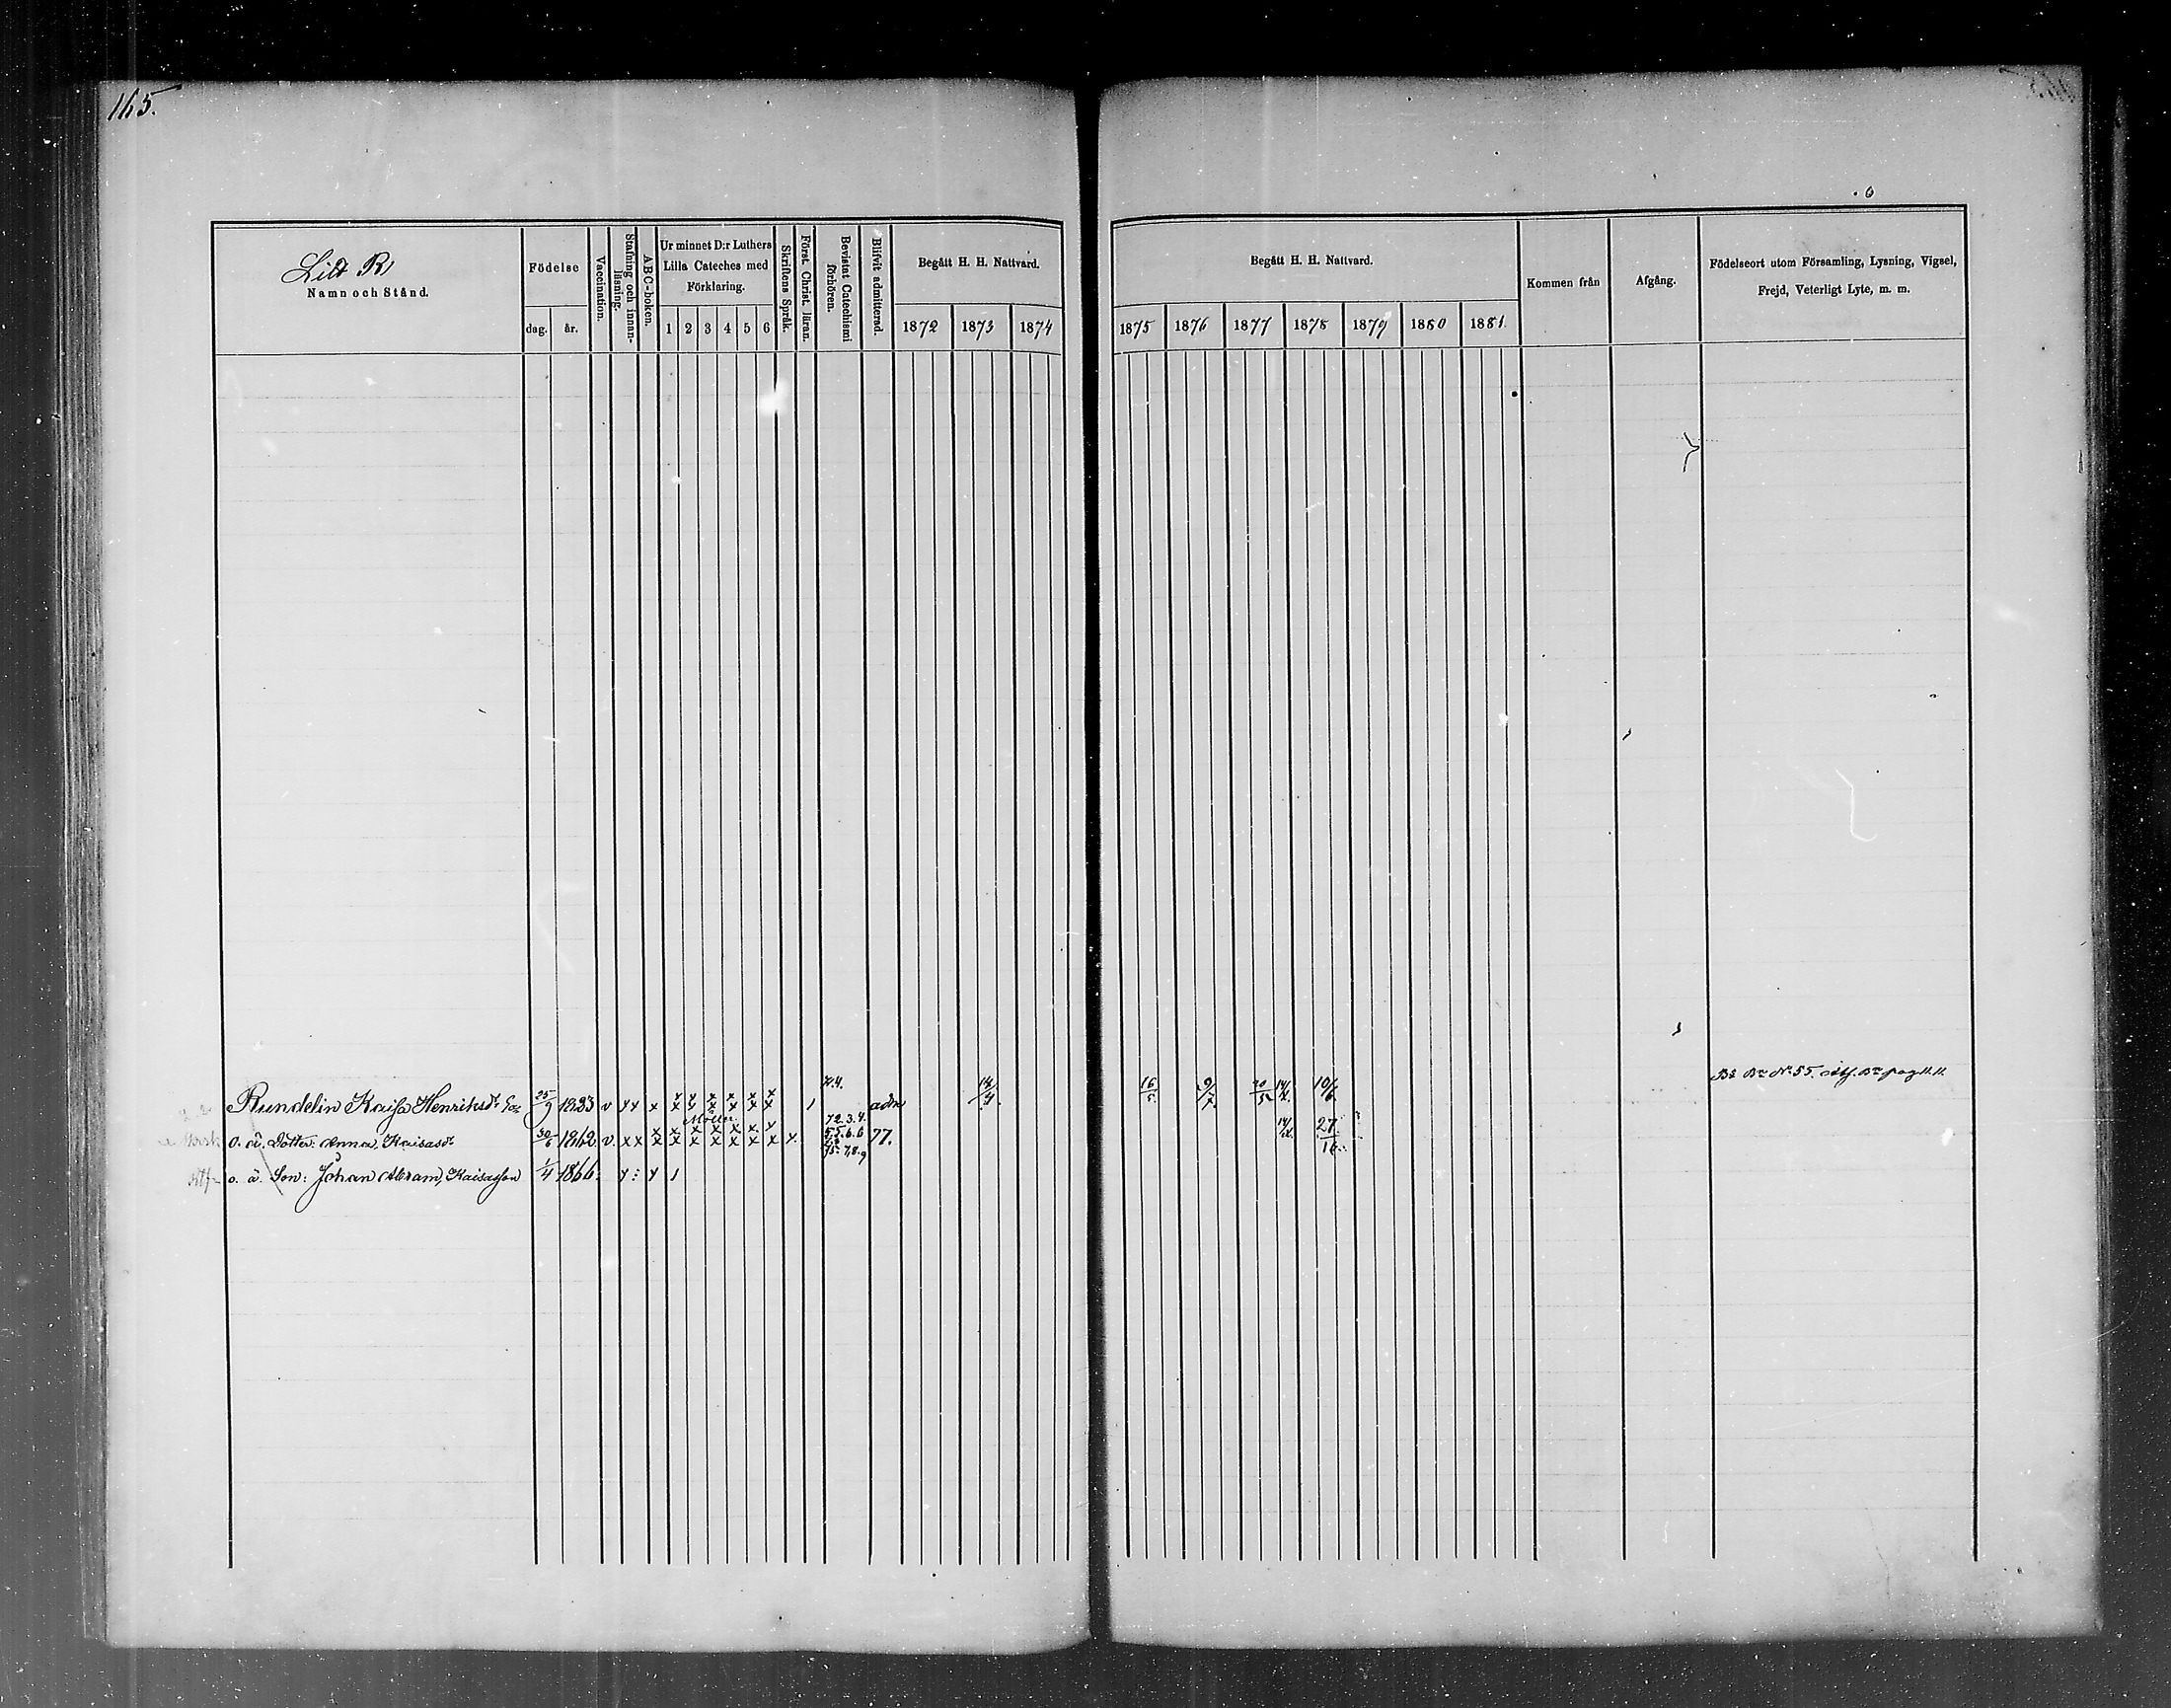 165.
Litt R
Namn och Stånd.
Födelse
dag. år.
Vaccination.
Stafning och innan-läsning.
ABC-boken.
Ur minnet D:r Luthers
Lilla Cateches med
Förklaring.
1 2 3 4 5 6
Skriftens Språk.
Först. Christ. läran.
Bevistat Catechismi förhören.
Blifvit admitterad.
Begått H. H. Nattvard.
1872 1873 1874
Begått H. H. Nattvard.
1875 1876 1877 1878 1879 1880 1881.
Kommen från
Afgång.
Födelseort utom Församling, Lysning, Vigsel,
Frejd, Veterligt Lyte, m. m.
Rundelin Kaisa Henriksdr 25/9 1833 v x x x x x x x x x adm 14/4 16/5 9/7 10/6
o. ä. Dotter: Anna, Kaisasdr 30/6 1862 v x x x x x x x x x x 77. 27/16
o. ä. Son: Johan Abram, Kaisason 1/4 1866